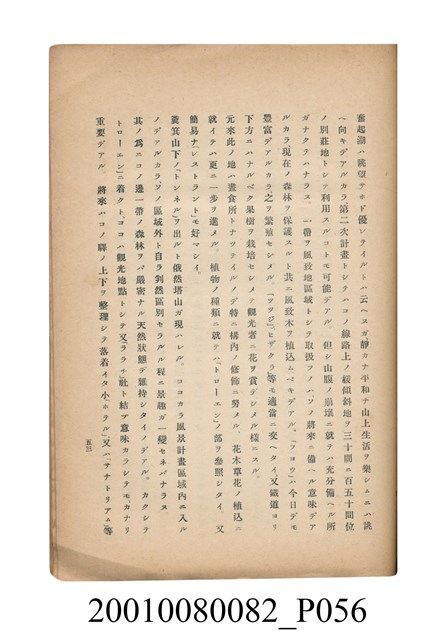 奮起湖ハ眺望サホド優レライルトハ云ヘヌガ靜カナ平和ナ山上生活ヲ樂シムニハ誂
ヘ向キデアルカラ第二次計畫トシテハコノ線路上ノ緩傾斜地ヲ三十間ニ百五十間位
ノ別莊地トシテ利用スルコトモ可能デアル。但シ山腹ノ崩壞ニ就テハ充分備ヘル所
ガナクテハナラヌ。一帶ヲ風致地區域トシテ取扱フノハソノ將來ニ備ヘル意味デア
ルカラ現在ノ森林ヲ保護スルト共ニ風致木ヲ植込ムベキデアル。「フヨウ」ハ今日デモ
豐富デアルカラ之ヲ繁殖セシメル。「ツツジ」「ヒザクラ」等モ適當ニ交ヘタイ、又鐵道ヨリ
下方ニハナルベク果樹ヲ栽培セシメテ觀光者ニ花ヲ賞デシメル樣ニスル。
元來此ノ地ハ晝食所トナツテイルノデ特ニ構內ノ修飾ニ努メル、花木草花ノ植込ニ
就イテハ更ニ一步ヲ進メル。植物ノ種類ニ就テハ「トローエン」ノ部ヲ參照シタイ、又
簡易ナ「レストラント」モ好マシイ。
糞箕山下ノ「トンネル」ヲ出ルト俄然塔山ガ現ハレル。ココカラ風景計畫區域內ニ入ル
ノデアルカラソノ區域外ト自ラ判然區別セラルル程ニ景趣ガ一變セネバナラヌ。
其ノ爲ニコノ邊一帶ノ森林ヲバ嚴密ナル天然狀態デ維持シタイノデアル。カクシテ
「トローエン」ニ着クト、ココハ觀光地點トシテ又「ララチ」社トノ結ブ意味カラシテモ、カナリ
重要デアル。將來ハコノ驛ノ上下ヲ整理シテ落着イタ小「ホテル」又ハ「サナトリアム」等
五三
20010080082_P056